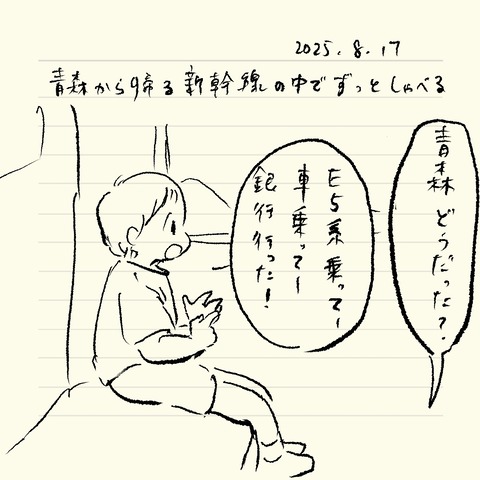 2025.8.17
青森から帰る新幹線の中でずっとしゃべる
青森どうだった?
E5系乗ってー
車乗ってー
銀行行った!